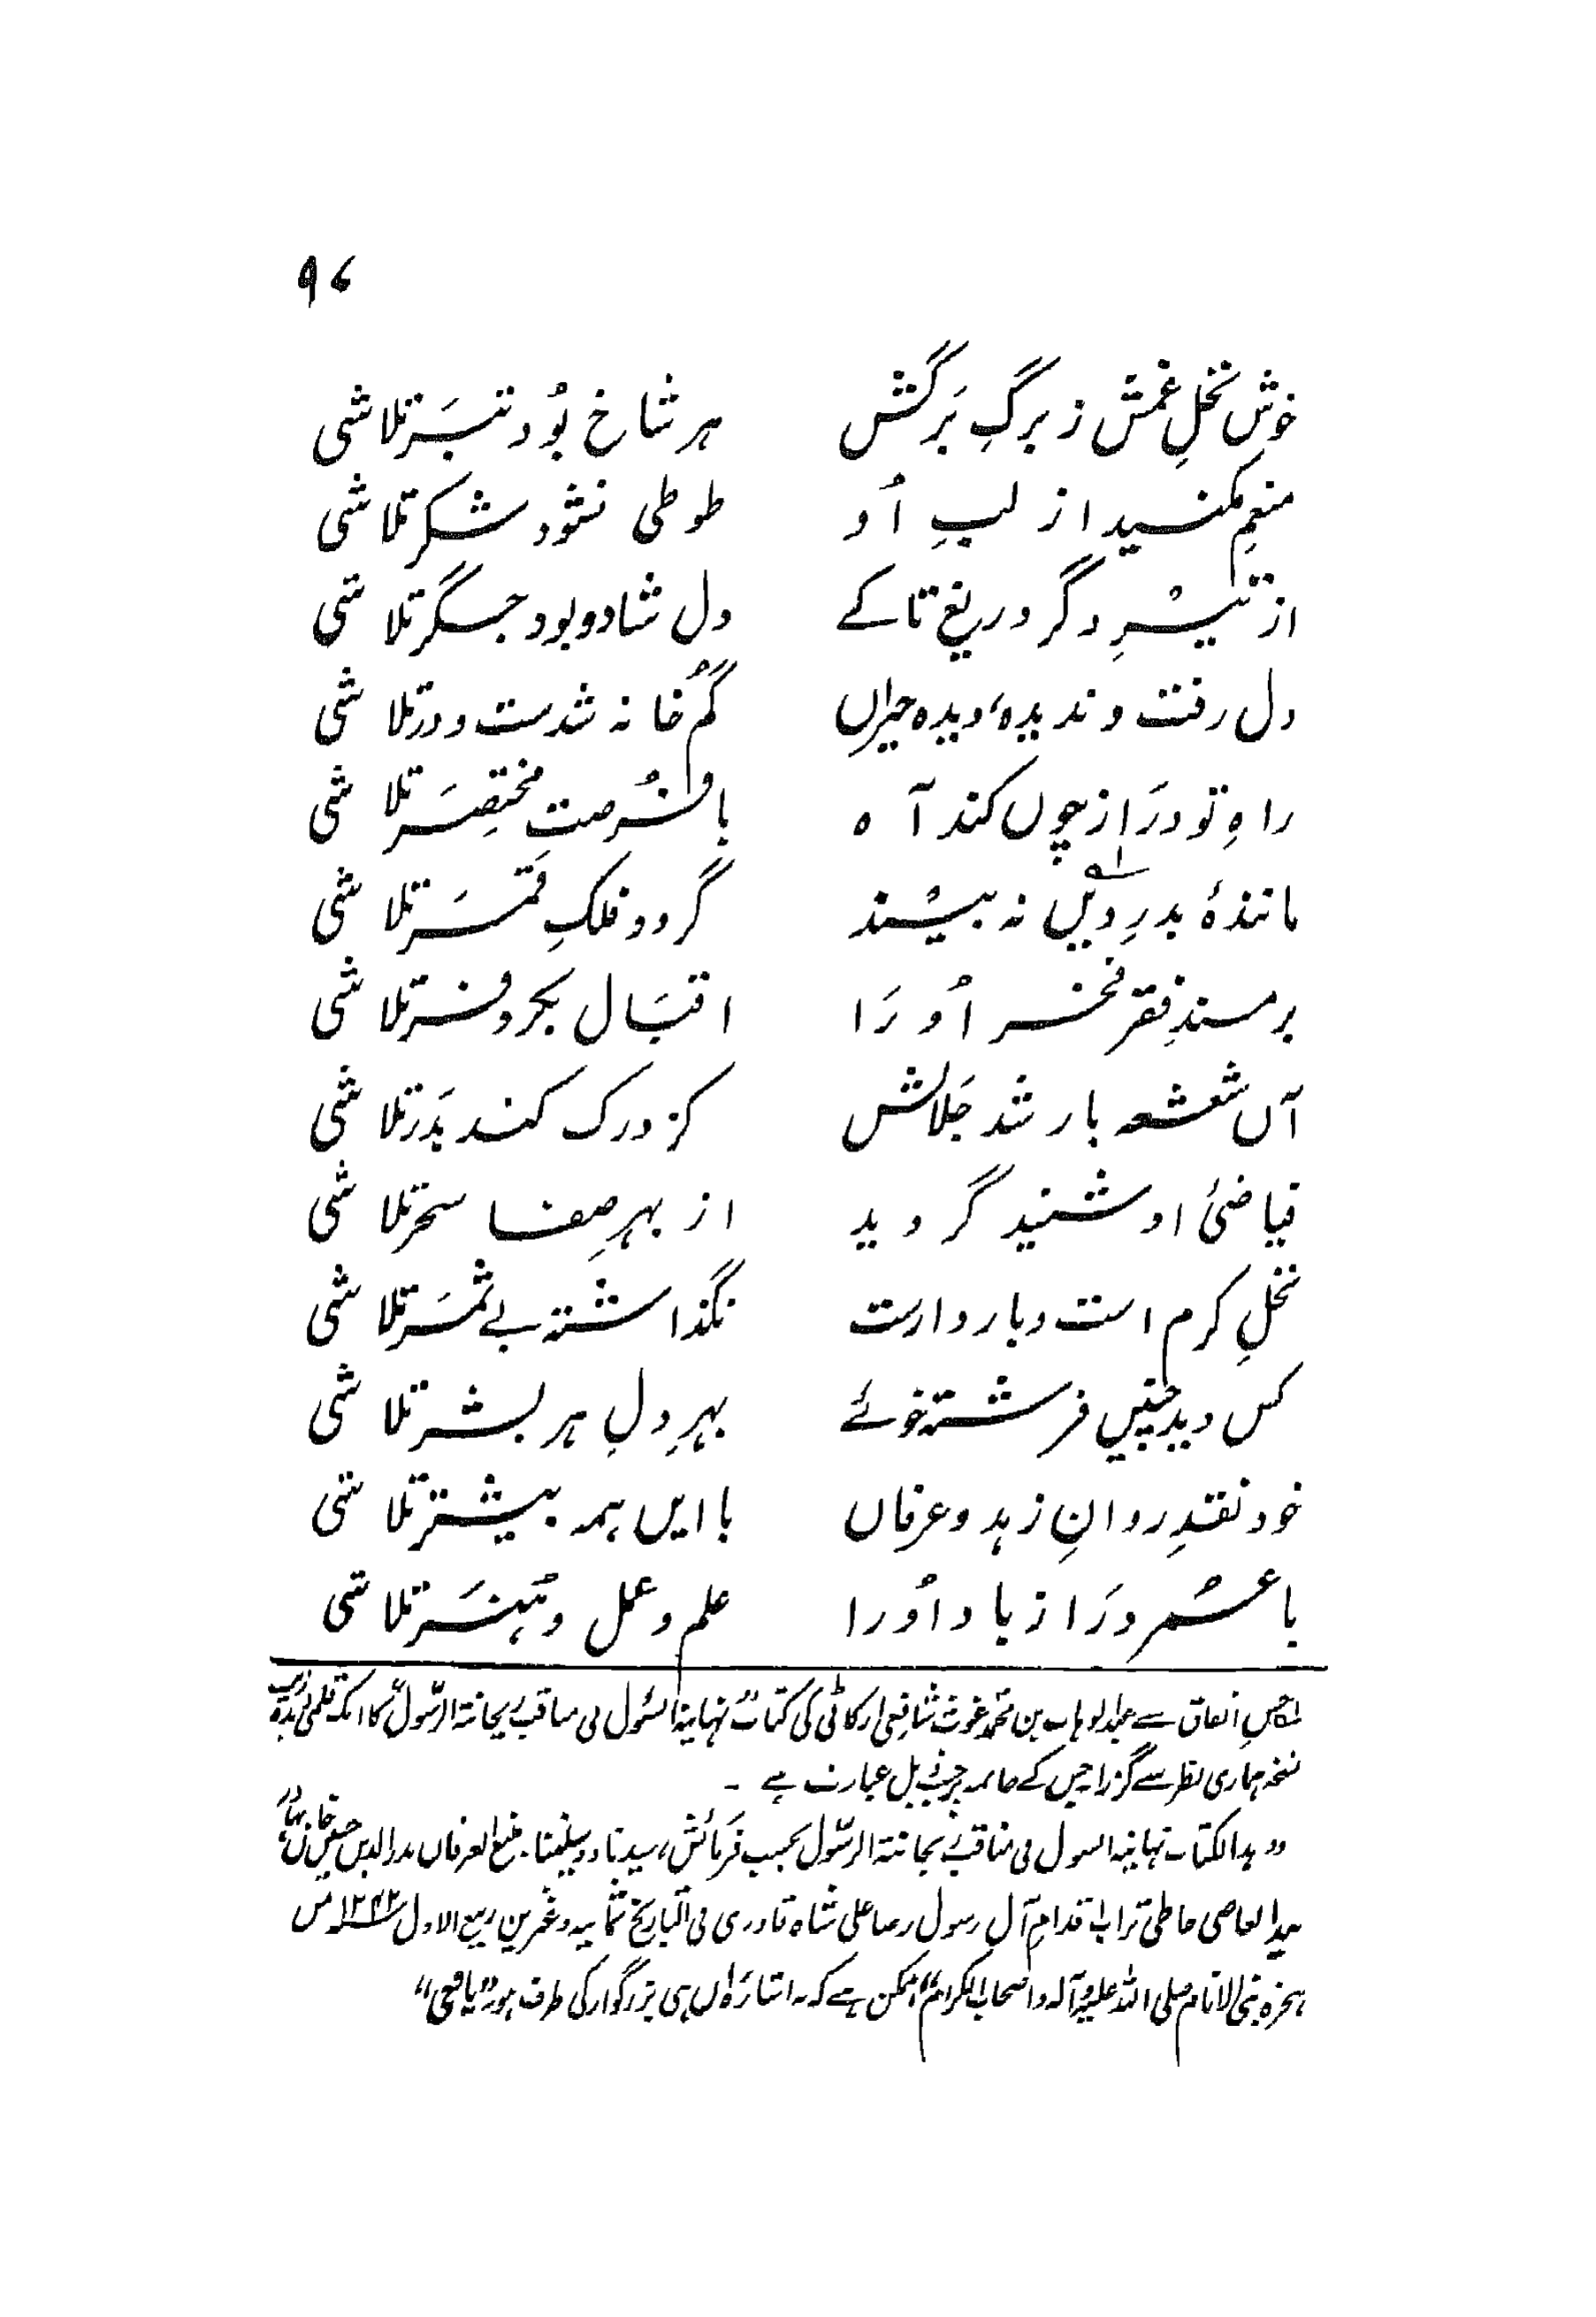 ۹۷
خوش نخلِ غمش ز برگِ بَرگش ہر شاخ بُود تبَر تلاشی
منعم مکنید از لبِ اُو طوطی نشود شکر تلاشی
از تیرِ دگر دریغ تا کے دل شاد و بود جگر تلاشی
دل رفت و ندیدہ، دیدہ حیراں گم خانہ شدست و در تلاشی
راہِ تو درَاز چوں کند آہ با فرصتِ مختصَر تلاشی
مانندۂ بدرِ دیں۱ نہ بیند گردد فلکِ قمَر تلاشی
بر مسندِ فقر فخر اُو رَا اقبَال بکر و فر تلاشی
آں شعشعہ بار شد جَلالش کز درک کند بَدَر تلاشی
فیاضیٔ او شنید گردید از بہرِ صفا سحر تلاشی
نخلِ کرم است و باردارست نگذاشتہ بے ثمَر تلاشی
کس دید چنیں فرشتہ خوئے بہرِ دلِ ہر بشر تلاشی
خود نقدِ روانِ زہد و عرفاں با ایں ہمہ بیشتر تلاشی
با عمر درَاز باد اُو را علم و عمل و ہُنَر تلاشی
حسنِ اتفاق سے عبدالوہاب بن محمد غوث شافعی ارکاٹی کی کتاب "نہایۃ السئول فی مناقب ریحانۃ الرّسول" کا ایک قلمی
نسخہ ہماری نظر سے گزرا جس کے خاتمہ پر حسبِ ذیل عبارت ہے ۔
"ہذا الکتاب نہایۃ السول فی مناقب ریحانۃ الرسّول بحسب فرَمائش، سیدنا و منبع العرفاں بدرالدین حسین خان بہادر
بید العاصی خاطی تراب اقدامِ آلِ رسول رضا علی شاہ قادری فی التاریخ ثمانیہ و عشرین ربیع الاول ۱۲۴۲ من
ہجرہ نبی الانام صلی اللہ علیہ وآلہ واصحابہ الکرام" ممکن ہے کہ یہ اشارَہ اں ہی بزرگوار کی طرف ہو۔